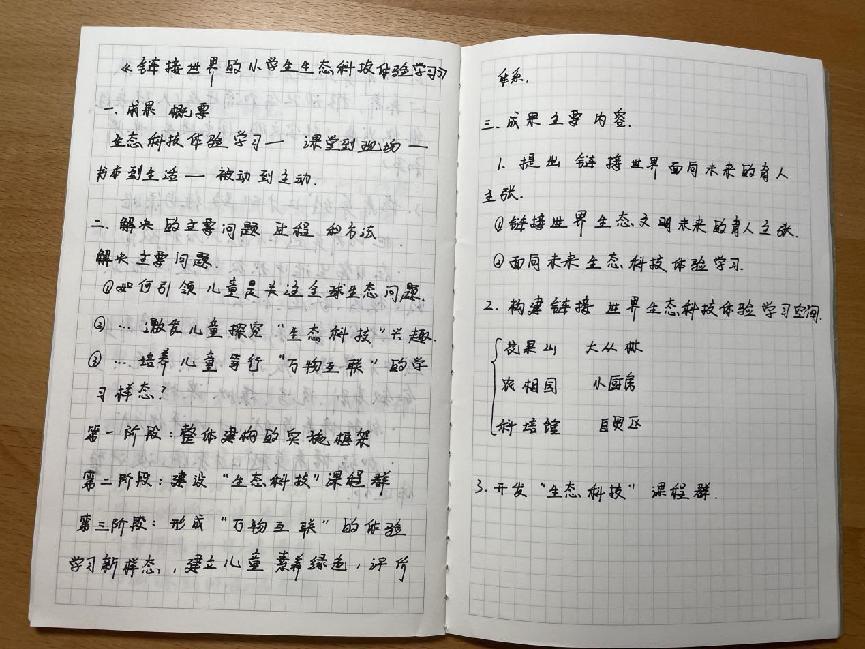 《链接世界的小学生生态科技体验学习》
一.成果概要
生态科技体验学习— 课堂到现场—
书本到生活—被动到主动.
二.解决的主要问题 过程和方法
解决主要问题.
①如何引领儿童是关注全球生态问题.
②…激发儿童探究“生态科技”兴趣.
③…培养儿童笃行“万物互联”的学
习样态?
第一阶段:整体建构的实施框架
第二阶段:建设“生态科技”课程群
第三阶段:形成“万物互联”的体验
学习新样态.,建立儿童素养绿色,评价
体系.
三.成果主要内容.
1.提出链接世界面向未来的育人
主张.
①链接世界生态文明未来的育人主张.
②面向未来生态科技体验学习.
2.构建链接世界生态科技体验学习空间.
花果山 大丛林
农相园 小厨房
科培馆 自贸区
3.开发“生态科技”课程群.